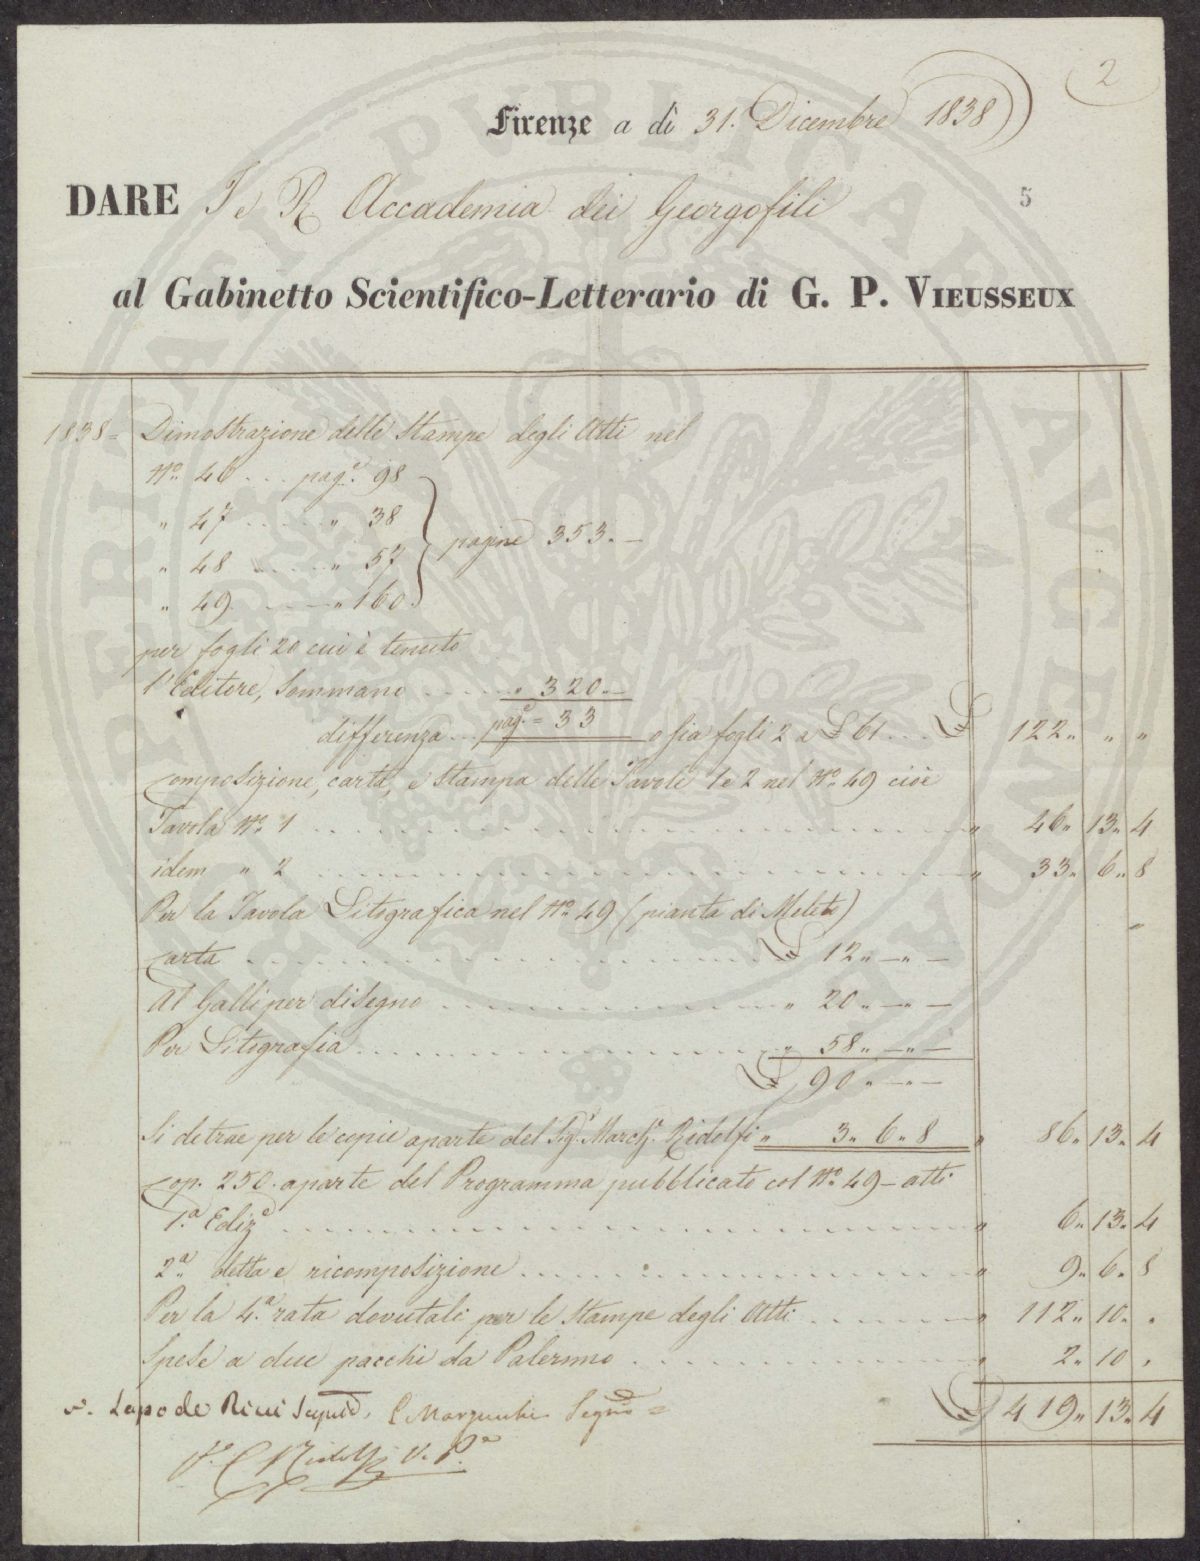 2
Firenze a dì 31. Dicembre 1838
DARE I e R Accademia dei Georgofili
5
al Gabinetto Scientifico-Letterario di G. P. VIEUSSEUX
1838= Dimostrazione delle Stampe degli Atti nel
Nº. 46 ... pag.e 98
" 47 ..... " 38
" 48 ..... " 57
" 49. ..... " 160.
pagine 353.—
per fogli 20 cui è tenuto
l'Editore, Sommano ..... " 320.—
differenza ... pag.e = 33 o sia fogli 2 a £ 61 ... £ 122 " " "
composizione, carta, e stampa delle Tavole 1 e 2 nel Nº. 49 cioè
Tavola Nº. 1 ..... " 46 " 13 " 4
idem " 2 ..... " 33 " 6 " 8
Per la Tavola Litografica nel Nº. 49 (pianta di Meleto)
carta ..... £ 12 " — " —
Al Galli per disegno ..... " 20 " — " —
Per Litografia ..... " 58 " — " —
£ 90 " — " —
Si detrae per le copie aparte del Sig.r March.e Ridolfi " 3 " 6 " 8 " 86 " 13 " 4
Cop. 250. aparte del Programma pubblicato col Nº. 49 – atti
1.a Ediz.e ..... " 6 " 13 " 4
2.a detta e ricomposizione ..... " 9 " 6 " 8
Per la 4.a rata dovutali per le Stampe degli Atti ..... " 112 " 10 " "
Spese a due pacchi da Palermo ..... " 2 " 10 "
£ 419 " 13 " 4
v. Lapo de Ricci
Ridolfi V. P.e